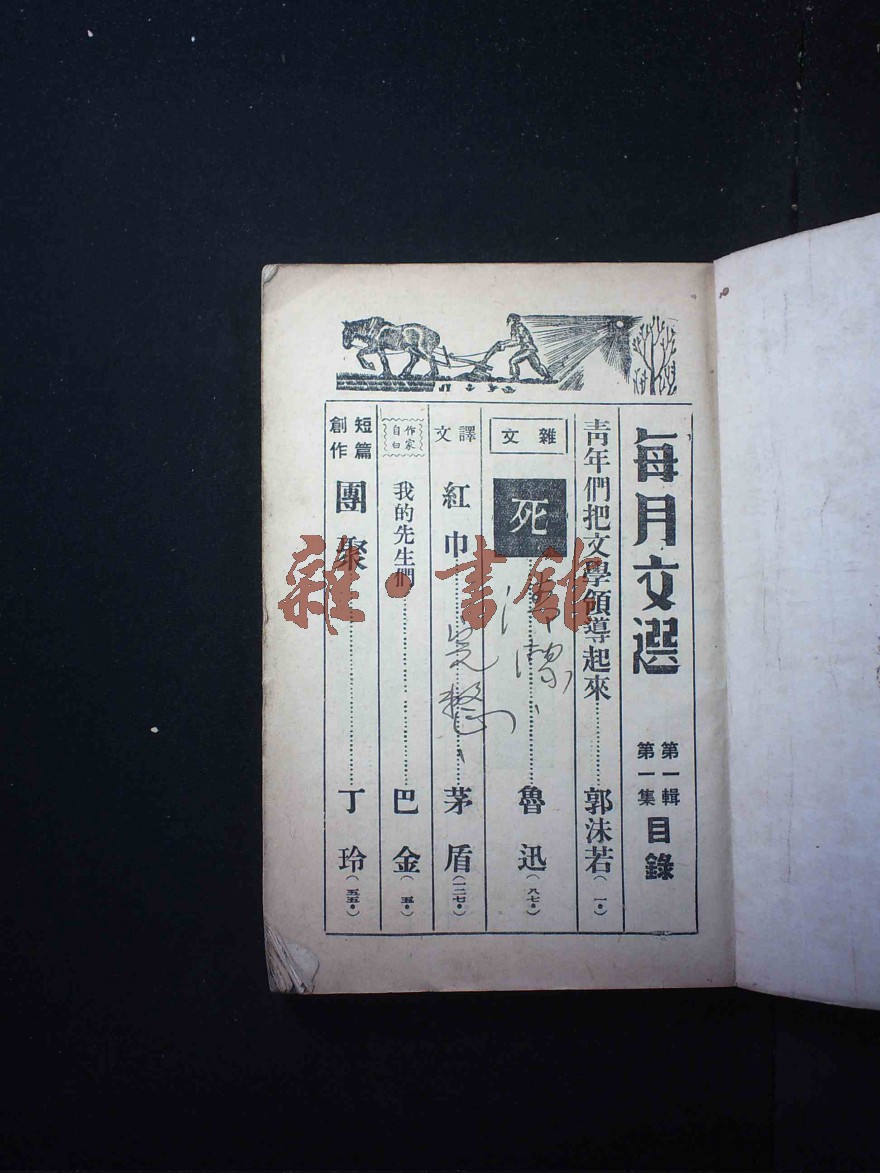 每月文選
第一輯
第一集
目錄
青年們把文學領導起來………郭沫若(一•)
雜文
死………魯迅(九七•)
譯文
紅巾………茅盾(一二七•)
作家自白
我的先生們………巴金(五•)
短篇創作
團聚………丁玲(五五•)
完整、
雜·書館